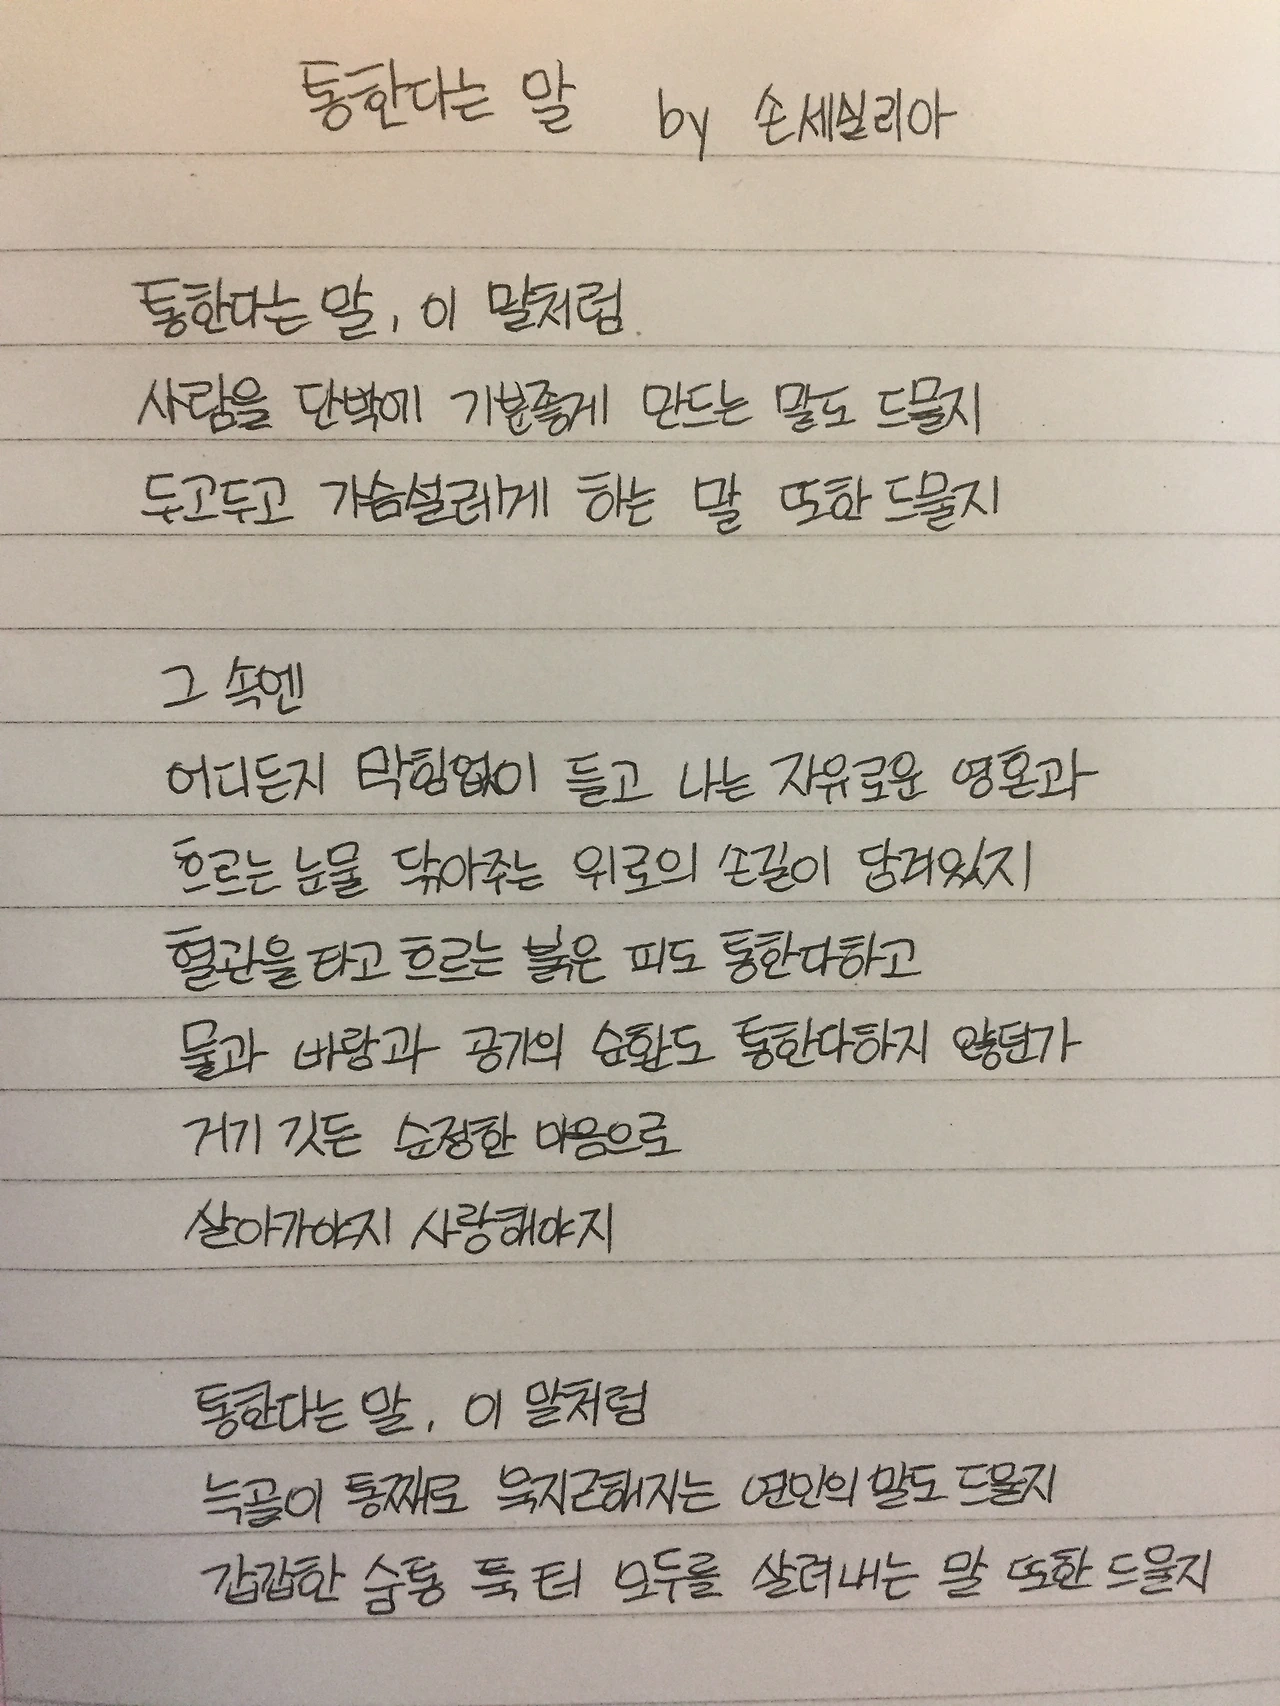 통한다는 말 by 손세실리아
통한다는 말, 이 말처럼
사람을 단박에 기분좋게 만드는 말도 드물지
두고두고 가슴설레게 하는 말 또한 드물지
그 속엔
어디든지 막힘없이 들고 나는 자유로운 영혼과
흐르는 눈물 닦아주는 위로의 손길이 담겨있지
혈관을 타고 흐르는 붉은 피도 통한다하고
물과 바람과 공기의 순환도 통한다하지 않던가
거기 깃든 순정한 마음으로
살아가야지 사랑해야지
통한다는 말, 이 말처럼
늑골이 통째로 욱지근해지는 연인의 말도 드물지
갑갑한 숨통 툭 터 모두를 살려내는 말 또한 드물지